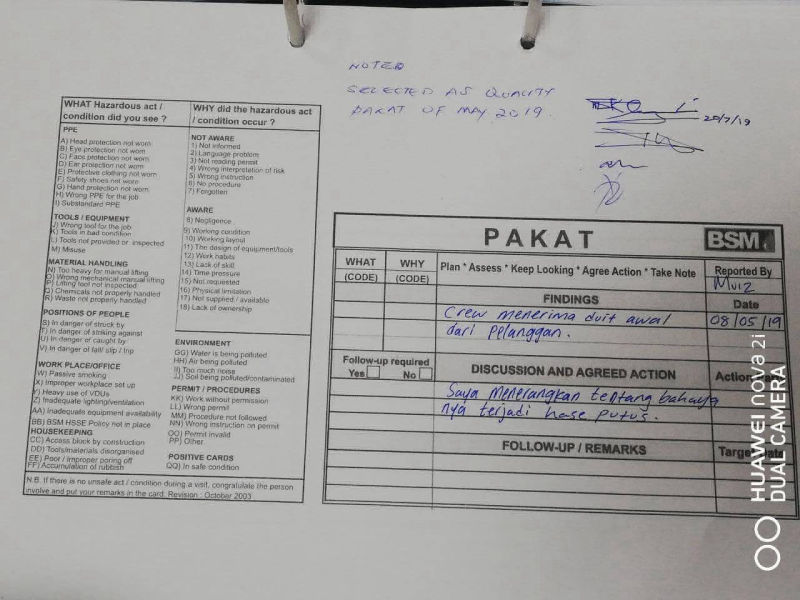 NOTED
SELECTED AS QUALITY
PAKAT OF MAY 2019.
20/7/19
WHAT Hazardous act /
condition did you see ?
PPE
A) Head protection not worn
B) Eye protection not worn
C) Face protection not worn
D) Ear protection not worn
E) Protective clothing not worn
F) Safety shoes not worn
G) Hand protection not worn
H) Wrong PPE for the job
I) Substandard PPE
TOOLS / EQUIPMENT
J) Wrong tool for the job
K) Tools in bad condition
L) Tools not provided or inspected
M) Misuse
MATERIAL HANDLING
N) Too heavy for manual lifting
O) Wrong mechanical manual lifting
P) Lifting tool not inspected
Q) Chemicals not properly handled
R) Waste not properly handled
POSITIONS OF PEOPLE
S) In danger of struck by
T) In danger of striking against
U) In danger of caught by
V) In danger of fall/ slip / trip
WORK PLACE/OFFICE
W) Passive smoking
X) Improper workplace set up
Y) Heavy use of VDUs
Z) Inadequate lighting/ventilation
AA) Inadequate equipment availability
BB) BSM HSSE Policy not in place
HOUSEKEEPING
CC) Access block by construction
DD) Tools/materials disorganised
EE) Poor / improper poring off
FF) Accumulation of rubbish
WHY did the hazardous act
/ condition occur ?
NOT AWARE
1) Not informed
2) Language problem
3) Not reading permit
4) Wrong interpretation of risk
5) Wrong instruction
6) No procedure
7) Forgotten
AWARE
8) Negligence
9) Working condition
10) Working layout
11) The design of equipment/tools
12) Work habits
13) Lack of skill
14) Time pressure
15) Not requested
16) Physical limitation
17) Not supplied / available
18) Lack of ownership
ENVIRONMENT
GG) Water is being polluted
HH) Air being polluted
II) Too much noise
JJ) Soil being polluted/contaminated
PERMIT / PROCEDURES
KK) Work without permission
LL) Wrong permit
MM) Procedure not followed
NN) Wrong instruction on permit
OO) Permit invalid
PP) Other.
POSITIVE CARDS
QQ) In safe condition
N.B. If there is no unsafe act / condition during a visit, congratulate the person
involve and put your remarks in the card. Revision : October 2003
PAKAT
BSM
WHAT
(CODE)
WHY
(CODE)
Plan * Assess * Keep Looking * Agree Action * Take Note
Reported By
Muiz
FINDINGS
Date
Crew menerima duit awal
08/05/19
dari pelanggan.
Follow-up required
Yes
No
DISCUSSION AND AGREED ACTION
Action
Saya menerangkan tentang bahaya
nya terjadi hose putus.
FOLLOW-UP / REMARKS
Target Date
HUAWEI nova 2i
DUAL CAMERA